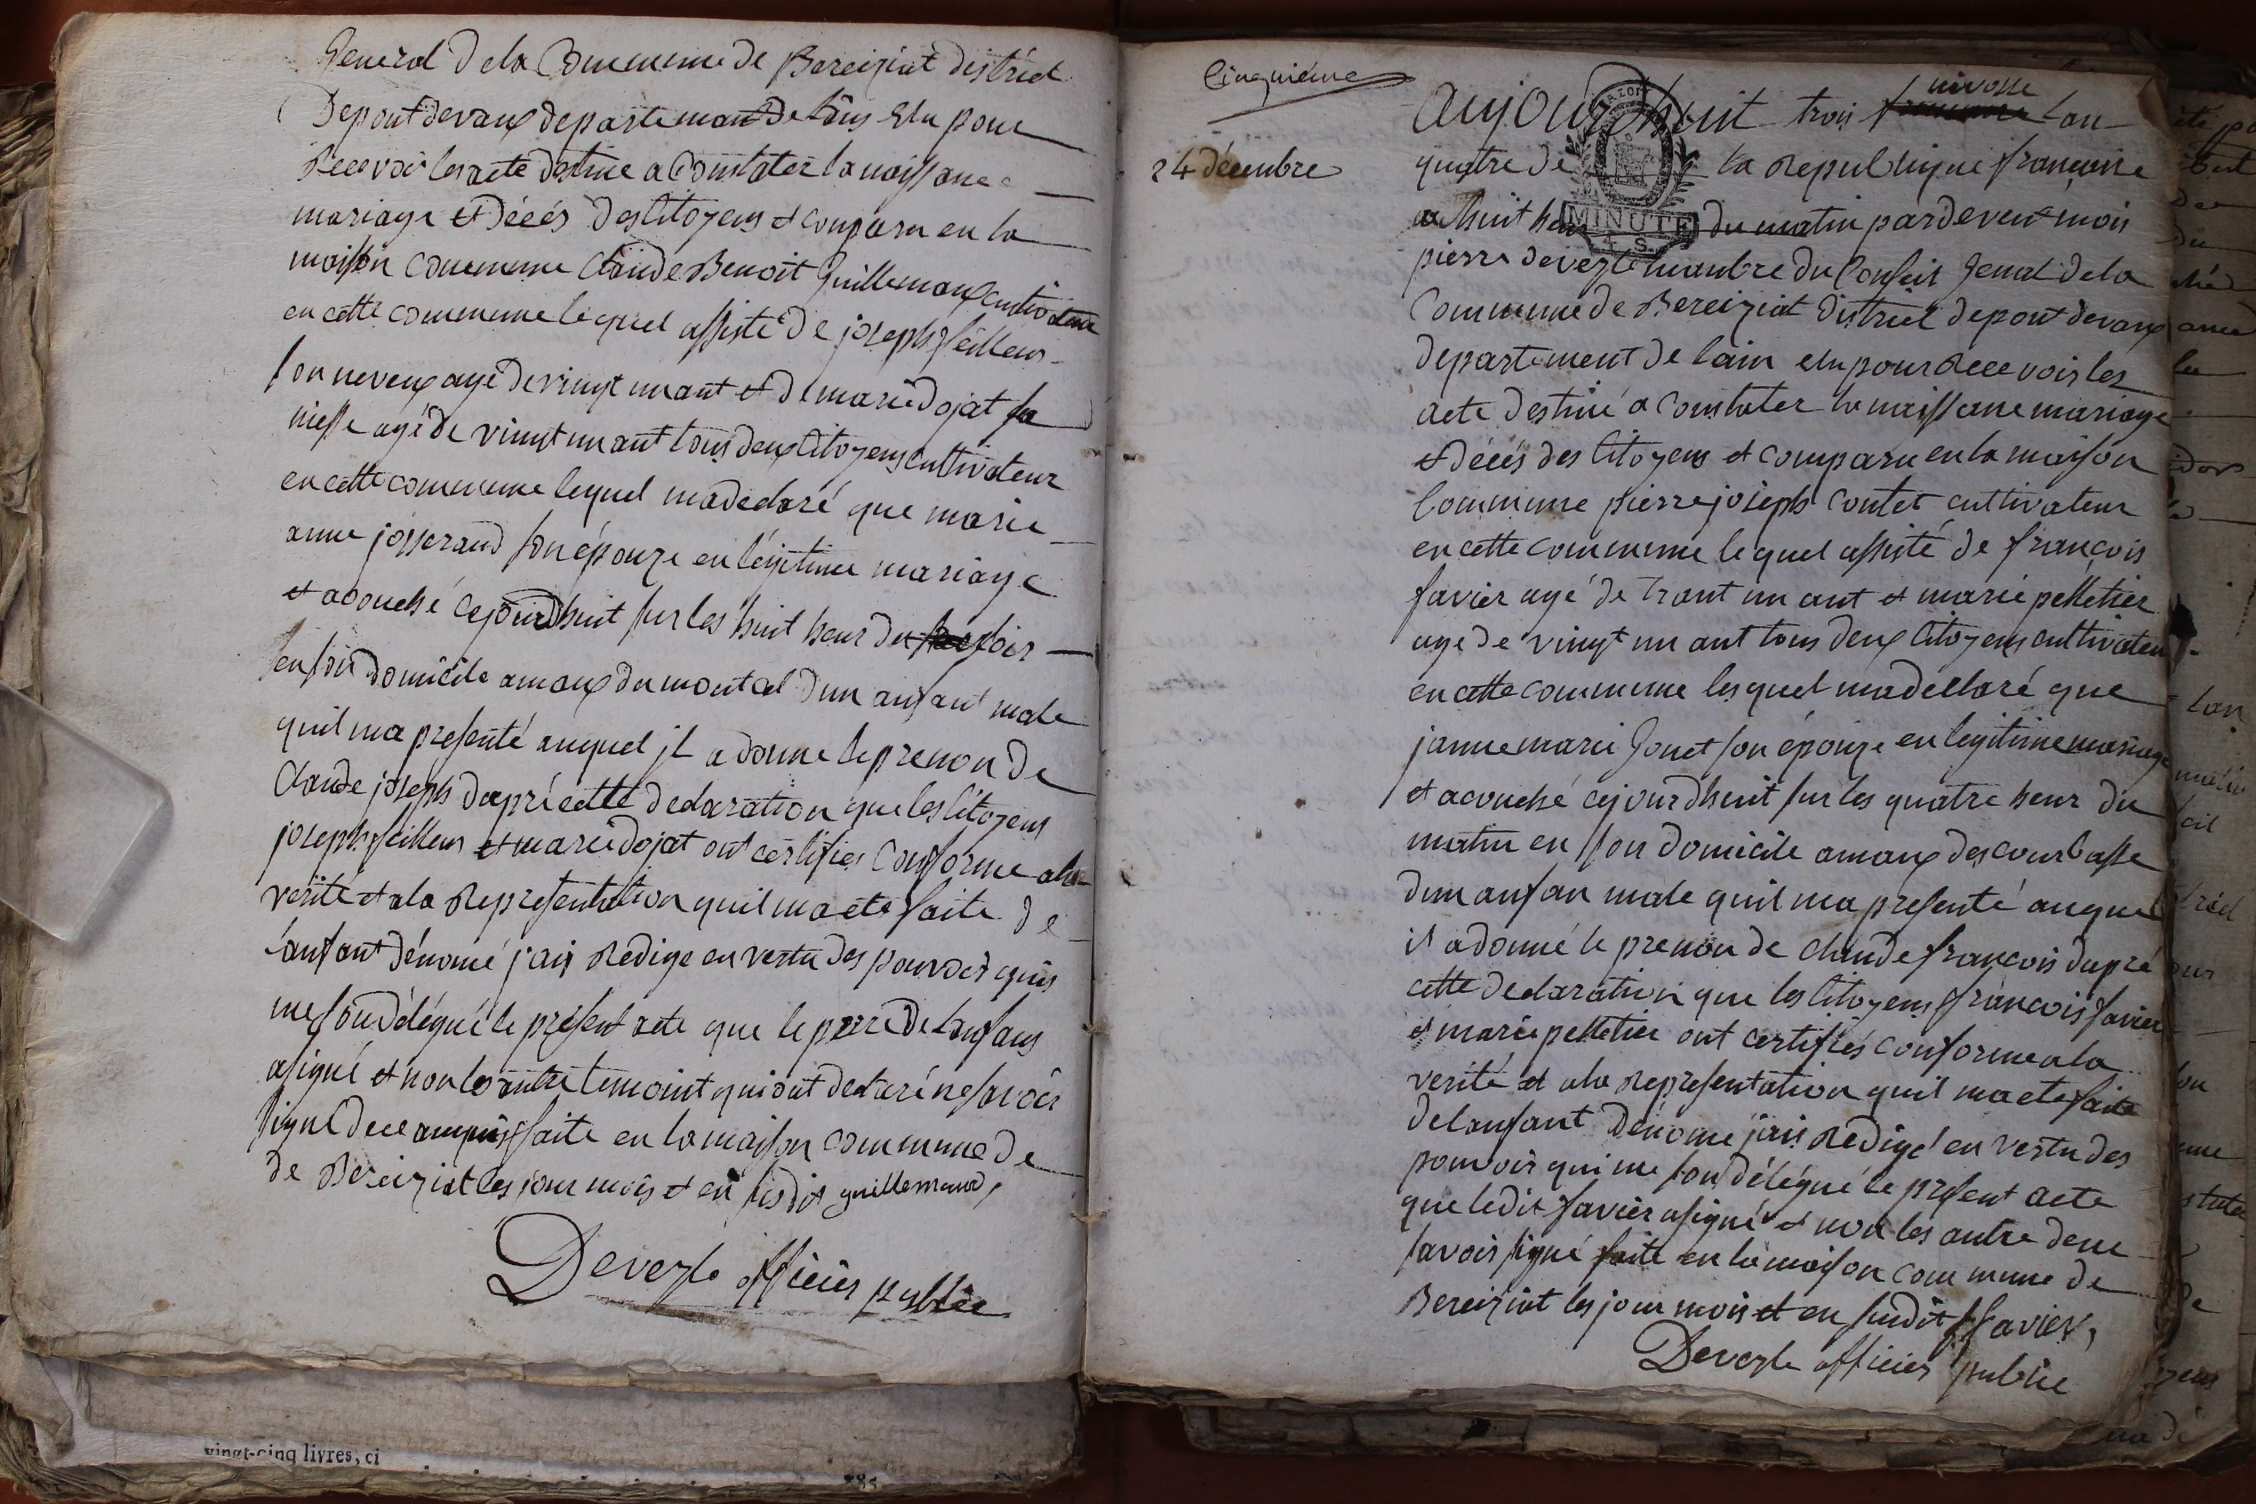 General De la Commune de Bereiziat district
Depont devaux departemant De lain Elu pour
Recevoir les acte destine a Constater la naissance
mariage et décés Des Citoyens et comparu en la
maison commune Claude Benoit Guillemaux cultivateur
en cette commune lequel assisté de joseph feilleus
son neveux agé de vingt un ant et De marie dojat sa
niesse agé de vingt un ant tous deux Citoyens cultivateur
en cette commune lequel ma declaré que marie
anne josserand son épouze en légitime mariage
et acouché cejourdhuit sur les huit heur du soir
en son domicile amaux du montcel dun anfant male
quil ma presenté auquel jl a donne le prenon de
Claude joseph dapré cette declaration que les Citoyens
joseph feilleus et marie dojat ont certifies Conforme ala
verité et ala Representation quil ma eté faite de
lanfant dénomé jais Redige en vertu des pouvoir quis
me son délégué le présent acte que le pere de Lanfans
asigné et non les autre temoint qui ont declaré ne savoir
signé De ce anquis faite en la maison commune De
de Bereiziat les jour mois et en susdit guillemaud,
Devezle officier publie
Cinquiéme
24 décembre
nivosse
Aujourdhuit trois Lan
quatre de la Republique francaise
a huit heur du matin pardevent mois
pierre devezle manbre du Conseil Genal de la
Commune de Bereiziat District depont devaux
departement de lain elu pour Recevoir les
acte destiné a constater la naissane mariage
et décés des Citoyens et comparu en la maison
Commune pierre joseph contet cultivateur
en cette commune lequel assisté de francois
favier agé de trant un ant et marie pelletier
age de vingt un ant tous deux Citoyens cultivateur
en cette commune les quel ma déclaré que
janne marie Gonet son épouze en legitime mariage
et acouché cejourdhuit sur les quatre heur du
matin en son domicile amaux des courbasse
dun anfan male quil ma presenté auquel
il a donné le prenon de claude francois dapré
cette declaration que les Citoyens francois favier
et marie pelletier ont certifiés conforme a la
verité et ala Representation quil ma eté faite
de lanfant dénomé jais Redigé en vertu des
pouvoir qui me son délégué le présent acte
que ledit favier asigné et non les autre
savoir signé faite en la maison commune de
Bereiziat les jour mois et en susdit f favier,
Devezle officier publie
MINUTE
vingt-cinq livres, ci